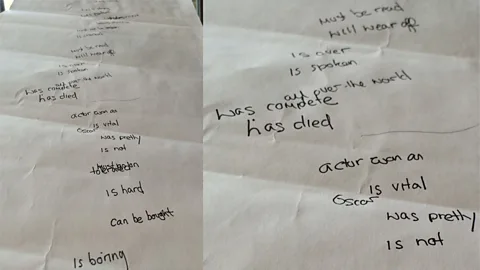 must be read
will wear off
is over
is spoken
all over the world
was complete
has died
actor won an
is vital
Oscar
was pretty
is not
tolerated
is hard
can be bought
is boring
must be read
will wear off
is over
is spoken
all over the world
was complete
has died
actor won an
is vital
Oscar
was pretty
is not